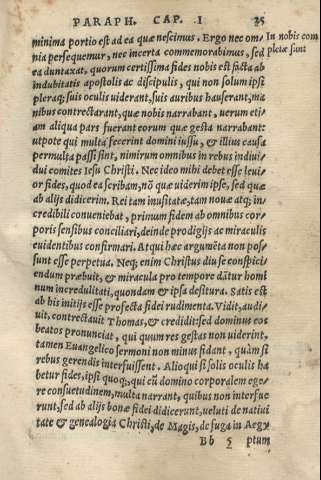 PARAPH. CAP. I 25
minima portio est ad ea quæ nescimus. Ergo nec om-
nia persequemur, nec incerta commemorabimus, sed
ea duntaxat, quorum certissima fides nobis est facta ab
indubitatis apostolis ac discipulis, qui non solum ipsi
pleraq; suis oculis uiderant, suis auribus hauserant, ma
nibus contrectarant, quæ nobis narrabant, uerum eti-
am aliqua pars fuerant eorum quæ gesta narrabant:
utpote qui multa fecerint domini iussu, & illius causa
permulta passi sint, nimirum omnibus in rebus indiui
dui comites Iesu Christi. Nec ideo mihi debet esse leui-
or fides, quod ea scribam, nõ quæ uiderim ipse, sed quæ
ab alijs didicerim. Rei tam inusitatæ, tam nouæ atq; in-
credibili conueniebat, primum fidem ab omnibus cor-
poris sensibus conciliari, deinde prodigijs ac miraculis
euidentibus confirmari. At qui hæc argumẽta non pos-
sunt esse perpetua. Neq; enim Christus diu se conspici-
endum præbuit, & miracula pro tempore dãtur homi
num incredulitati, quondam & ipsa desitura. Satis est
ab his initijs esse profecta fidei rudimenta. Vidit, audi-
uit, contrectauit Thomas, & credidit: sed dominus eos
beatos pronunciat, qui quum res gestas non uiderint,
tamen Euangelico sermoni non minus fidant, quàm si
rebus gerendis interfuissent. Alioqui si solis oculis ha
betur fides, ipsi quoq;, qui cũ domino corporalem ege-
re consuetudinem, multa narrant, quibus non interfue
runt, sed ab alijs bonæ fidei didicerunt, ueluti de natiui
tate & genealogia Christi, de Magis, de fuga in Aegy
Bb 5 ptum
In nobis com
pletæ sunt